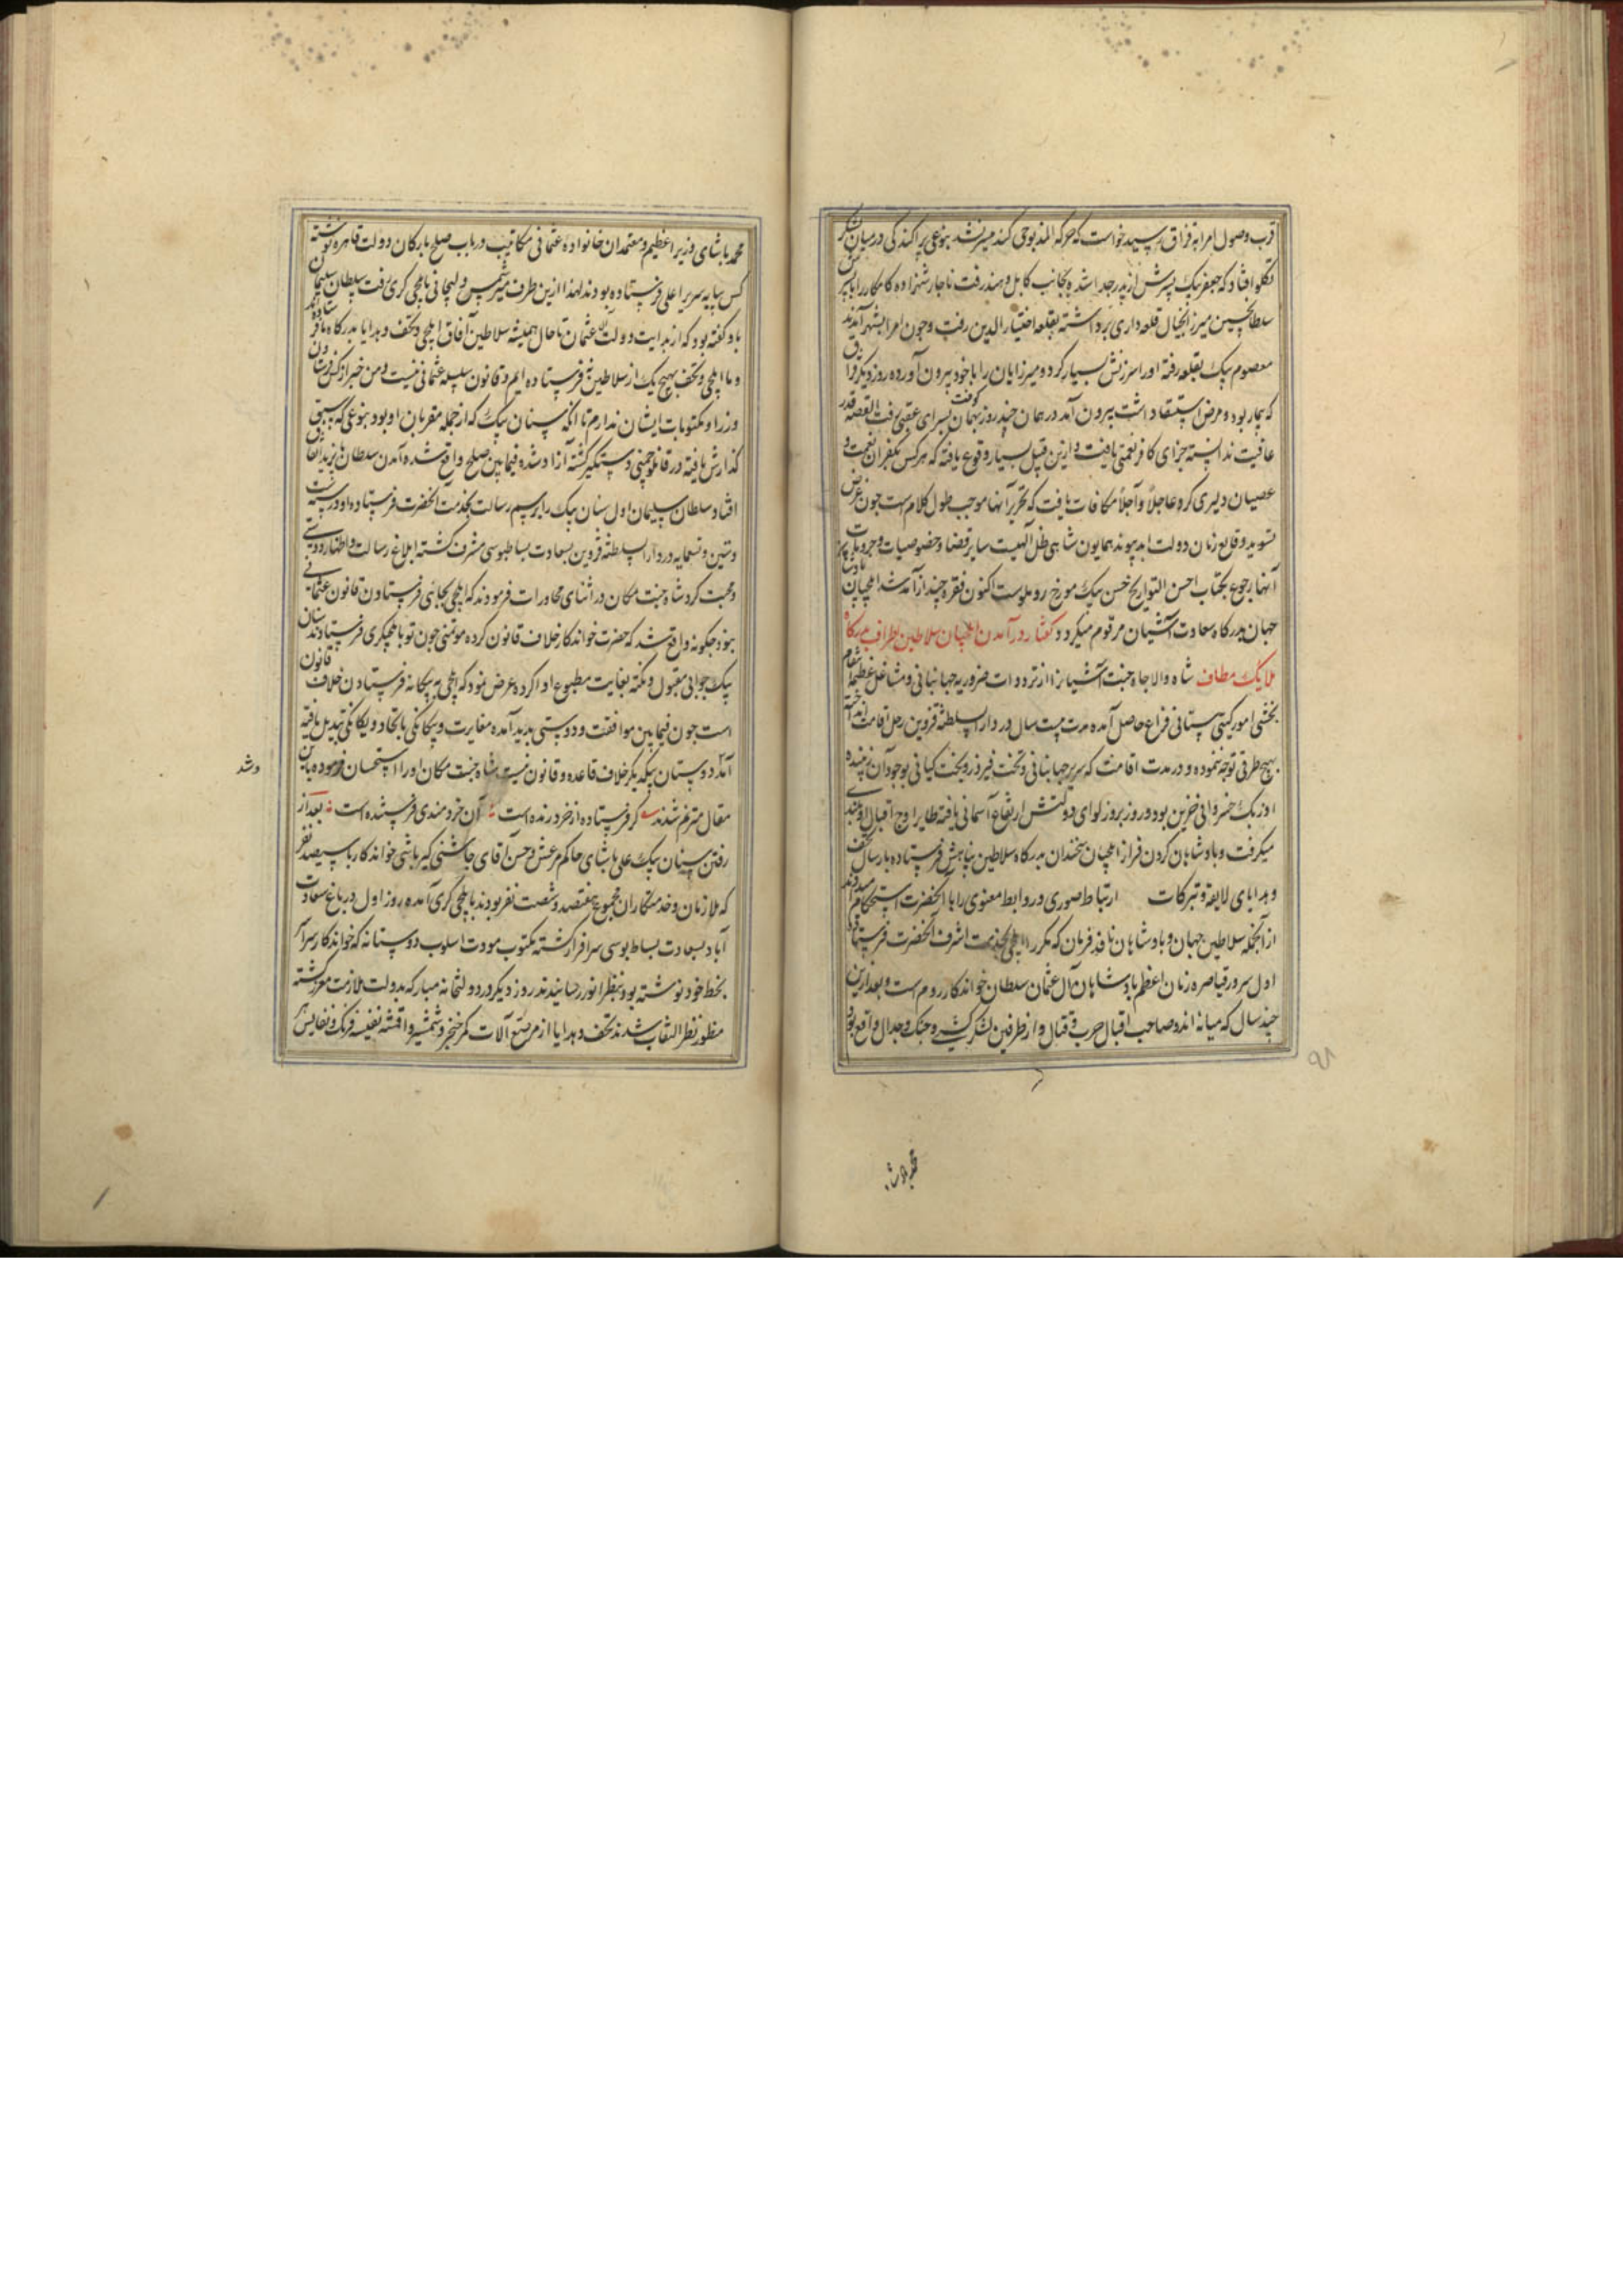 قرب وصول امرا به قزاق رسید خواست که حرکه المذبوحی کند میسر نشد بنوعی پراکندکی در میان لشکر
تکلو افتاد که جعفر بیک پسرش از پدر جدا شده بجانب کابل و هند رفت ناچار شهزاده کامکار را با پسرش
سلطان حسین میرزا بخیال قلعه داری برداشته بقلعه اختیار الدین رفت و چون امرا بشهر آمدند
معصوم بیک بقلعه رفته او را سرزنش بسیار کرد و میرزایان را با خود بیرون آورده روز دیکر قزاق
که بیمار بود و مرض استسقا داشت بیرون آمد در همان چند روز بهمان کوفت بسرای عقبی رفت القصه قدر
عافیت ندانسته جزای کافر نعمتی یافت و ازین قبیل بسیار وقوع یافته که هر کس بکفران نعمت و
عصیان دلیری کرد عاجلاً و آجلاً مکافات یافت که تحریر آنها موجب طول کلام است چون غرض
تسوید وقایع زمان دولت ابد پیوند همایون شاهی ظل الهیست سایر قضایا و خصوصیات و جزویات
آنها رجوع بکتاب احسن التواریخ حسن بیک مورخ روملوست اکنون فقره چند از آمد شد ایلچیان پادشاهان
جهان بدرکاه سعادت آشیان مرقوم میکردد کفتار در آمدن ایلچیان سلاطین اطراف بدرکاه
ملایک مطاف شاه والا جاه جنت آشیان را از ترددات ضروریه جهانبانی و مشاغل عظیمه انتظام
بخشی امور کیتی ستانی فراغ حاصل آمده مدت بیست سال در دار السلطنه قزوین رحل اقامت انداخته
بهیچ طرفی توجه ننموده و در مدت اقامت که سریر جهانبانی و تخت فیروز بخت کیانی بوجود آن زیبنده
اورنک خسروانی مزین بود و روز بروز لوای دولتش ارتفاع آسمانی یافته طایر اوج اقبال او بلندی
میکرفت و پادشاهان کردن فراز ایلچیان سخندان بدرکاه سلاطین پناهش فرستاده بارسال تحف
و هدایای لایقه و تبرکات ارتباط صوری و روابط معنوی را با آنحضرت استحکام میدادند
از آنجمله سلاطین جهان و پادشاهان نافذ فرمان که مکرر ایلچی بخدمت اشرف آنحضرت فرستاده
اول سرور قیاصره زمان اعظم پادشاهان آل عثمان سلطان خواندکار روم است و بعد ازین
چند سال که میانه اندو صاحب اقبال حرب و قتال و از طرفین لشکر کشی و جنک و جدال واقع بود
محمد پاشای
محمد پاشای وزیر اعظم و معتمدان خانواده عثمانی مکاتیب در باب صلح بارکان دولت قاهره نوشته
کس بپایه سریر اعلی فرستاده بودند لهذا ازین طرف میر شمس دلیجانی بایلچی کری رفت سلطان سلیمان
باو کفته بود که از بدایت دولت آل عثمان تا حال همیشه سلاطین آفاق ایلچی و تحف و هدایا بدرکاه ما فرستاده اند
و ما ایلچی و تحف بهیچ یک از سلاطین نه فرستاده ایم و قانون سلسله عثمانی نیست و من خبر از کس فرستادن
وزرا و مکتوبات ایشان ندارم تا آنکه سنان بیک که از جمله مقربان او بود بنوعی که سبق
کذارش یافته در قانلو چمنی دستکیر کشته آزاد شده فیما بین صلح واقع شده آمدن سلطان بایزید اتفاق
افتاد سلطان سلیمان اول سنان بیک را برسم رسالت بخدمت آنحضرت فرستاده او در سنه
وستین و تسعمایه در دار السلطنه قزوین بسعادت بساطبوسی مشرف کشته ابلاغ رسالت و اظهار دوستی
و محبت کرد شاه جنت مکان در اثنای محاورات فرمودند که ایلچی بجائی فرستادن قانون عثمانی
نبود چکونه واقع شد که حضرت خواندکار خلاف قانون کرده مؤتمنی چون تو بایلچیکری فرستادند سنان
بیک جوابی مقبول و نکته بغایت مطبوع ادا کرده عرض نمود که ایلچی به بیکانه فرستادن خلاف قانون
است چون فیما بین موافقت و دوستی پدید آمده مغایرت و بیکانکی باتحاد و یکانکی تبدیل یافته
آمد و شد دوستان بیکدیکر خلاف قاعده و قانون نیست شاه جنت مکان او را استحسان فرموده باین
مقال مترنم شدند کر فرستاده از خرد زنده است آن خردمندی فرستنده است بعد از
رفتن سنان بیک علی پاشای حاکم مرعش و حسن آقای چاشنی کیر باشی خواندکار با سیصد نفر
که ملازمان و خدمتکاران مجموع هفتصد و شصت نفر بودند بایلچی کری آمده روز اول در باغ سعادت
آباد بسعادت بساط بوسی سرافراز کشته مکتوب مودت اسلوب دوستانه که خواندکار سراسر
بخط خود نوشته بود بنظر انور رسانیدند روز دیکر در دولتخانه مبارکه بدولت ملازمت معزز کشته
منظور نظر التفات شدند تحف و هدایا از مرصع آلات کمر خنجر و شمشیر و اقمشه نفیسه فرنک و نفایس